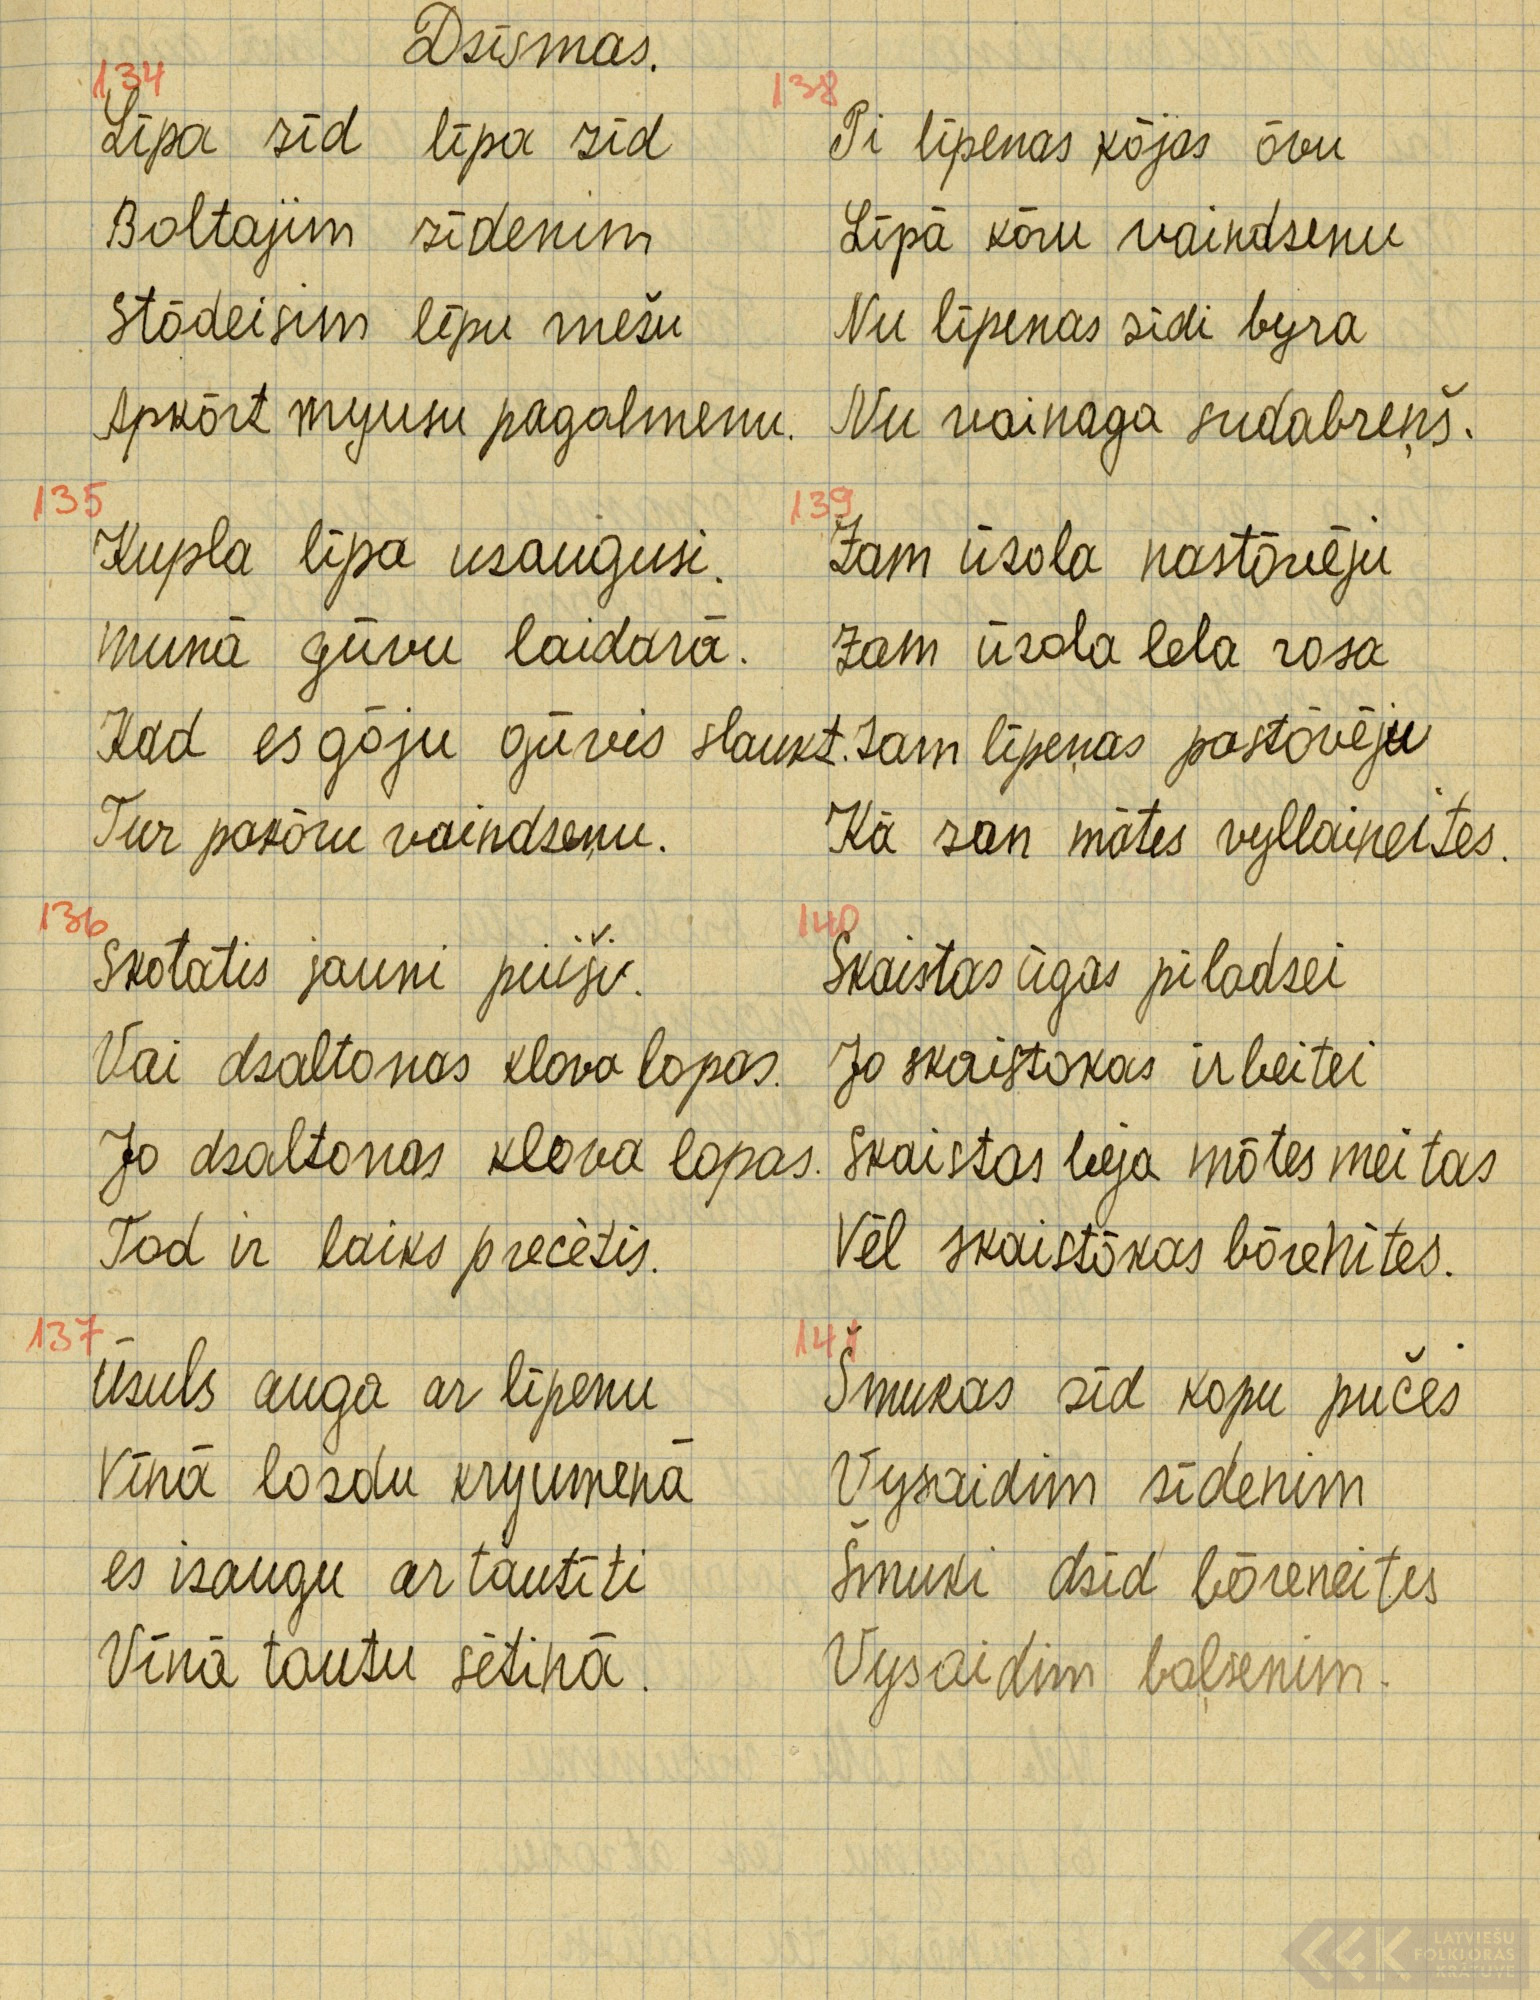 Dzīsmas.
134
Līpa zīd līpa zīd
Boltajim zīdenim
Stōdeisim līpu mežu
Apkōrt myusu pagalmenu.
135
Kupla līpa uzaugusi.
munā gūvu laidarā.
Kad es gōju gūvis slaukt.
Tur pakōru vaindzeņu.
136
Skotatis jauni puiši.
Vai dzaltonas klova lopas.
Jo dzaltonas klova lopas.
Tod ir laiks precētis.
137
Ūzuls auga ar līpenu
Vīnā lozdu kryumenā
es izaugu ar tautīti
Vīnā tautu sētinā.
138
Pi līpenas kōjas ōvu
Līpā kōru vaindzenu
Nu līpenas zīdi byra
Nu vainaga sudabreņš.
139
Zam ūzola nastōvēju
Zam ūzola lela rosa
Zam līpeņas pastōvēju
Kā zan mātes vyllaiņeites.
140
Skaistas ūgas pīladzei
Jo skaistokas irbeitei
Skaistas beja mōtes meitas
Vēl skaistōkas bōrenītes.
141
Šmukas zīd kopu pučes
Vysaidim zīdenim
Šmuki dzīd bōreneites
Vysaidim baļsenim.
LATVIEŠU
FOLKLORAS
KRĀTUVE